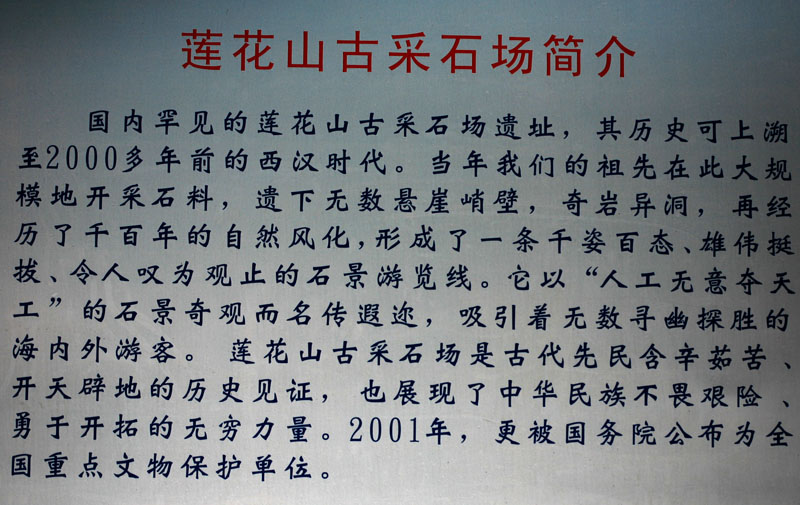 莲花山古采石场简介
国内罕见的莲花山古采石场遗址，其历史可上溯
至2000多年前的西汉时代。当年我们的祖先在此大规
模地开采石料，遗下无数悬崖峭壁，奇岩异洞，再经
历了千百年的自然风化，形成了一条千姿百态、雄伟挺
拔、令人叹为观止的石景游览线。它以“人工无意夺天
工”的石景奇观而名传遐迩，吸引着无数寻幽探胜的
海内外游客。 莲花山古采石场是古代先民含辛茹苦、
开天辟地的历史见证，也展现了中华民族不畏艰险、
勇于开拓的无穷力量。2001年，更被国务院公布为全
国重点文物保护单位。